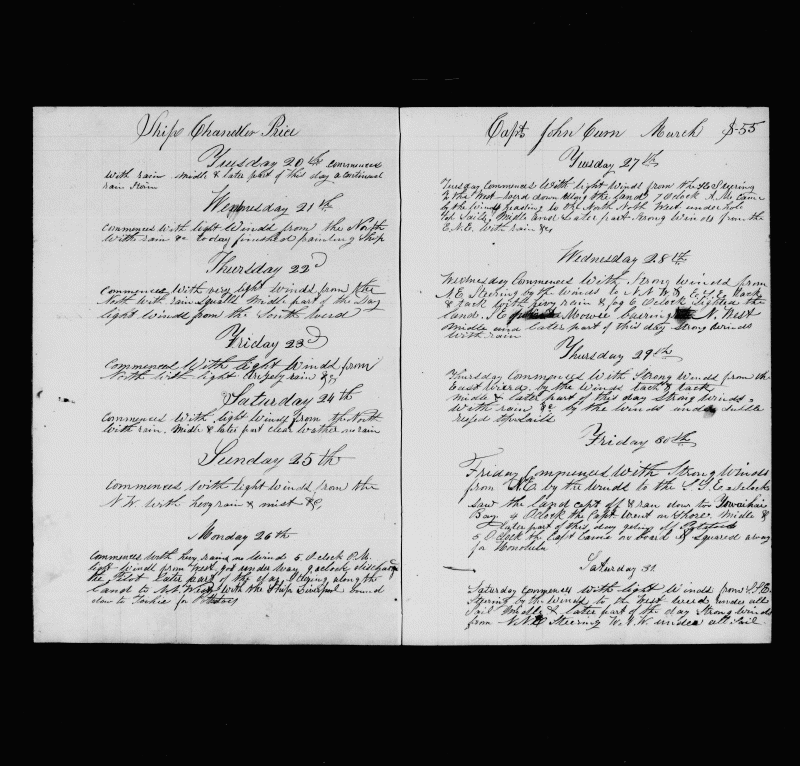 Ship Chandler Price
Tuesday 20th commenced
with rain middle & later part of this day a continued
rain
Wednesday 21th
commences with light winds from the North
with rain &c today finished painting Ship
Thursday 22d
commences with very light winds from the
North with rain squalls Middle part of the Day
light winds from the South
Friday 23d
Commenced With light Winds from
North with light rain &c
Saturday 24th
Commences with light Winds from the North
with rain. Midle & later part clear wather no rain
Sunday 25th
commences with light winds from the
N.W. with hevy rain & mist &c
Monday 26th
Commences with hevy rain no wind 5 O clock P.M.
light winds from West got under way 9 oclock discharg
the Pilot Later part of the day Steering along the
land to with the Ship Liverpool bound
down to for
Capt John Curn March 55
Tuesday 27th
Tuesday Commences With light winds from the Steering
to the down along the land 7 O clock A.M. Came
by the Winds to the North North West under
top Sails, Midle and Later part Strong Winds from the
E.N.E. With rain &c
Wednesday 28th
Wednesday Commences With Strong Winds from
N.E. Steering by the Winds to E.S.E. tack
& tack with hevy rain & fog 6 O clock Sighted the
land Mowee bearing N. West
Middle and later part of this day Strong winds
with rain
Thursday 29th
Thursday Commences With Strong Winds from the
East by the Winds tack & tack
midle & later part of this day Strong Winds
With rain &c by the winds under dubble
reefed topsails
Friday 30th
Friday Commenced With Strong Winds
from N.E. by the Winds to the S.S.E.
saw the land capt off & ran down to
Bay 4 O clock the Capt Went on Shore. Middle &
later part of this day geting off
5 O clock the Capt Came on board & Squared away
for Honolulu
Saturday 31
Saturday commences with light Winds from S.S.E.
Stearing by the Winds to the West under all
Sail Middle & later part of the day Strong winds
from Steering W.S.W. under all Sail